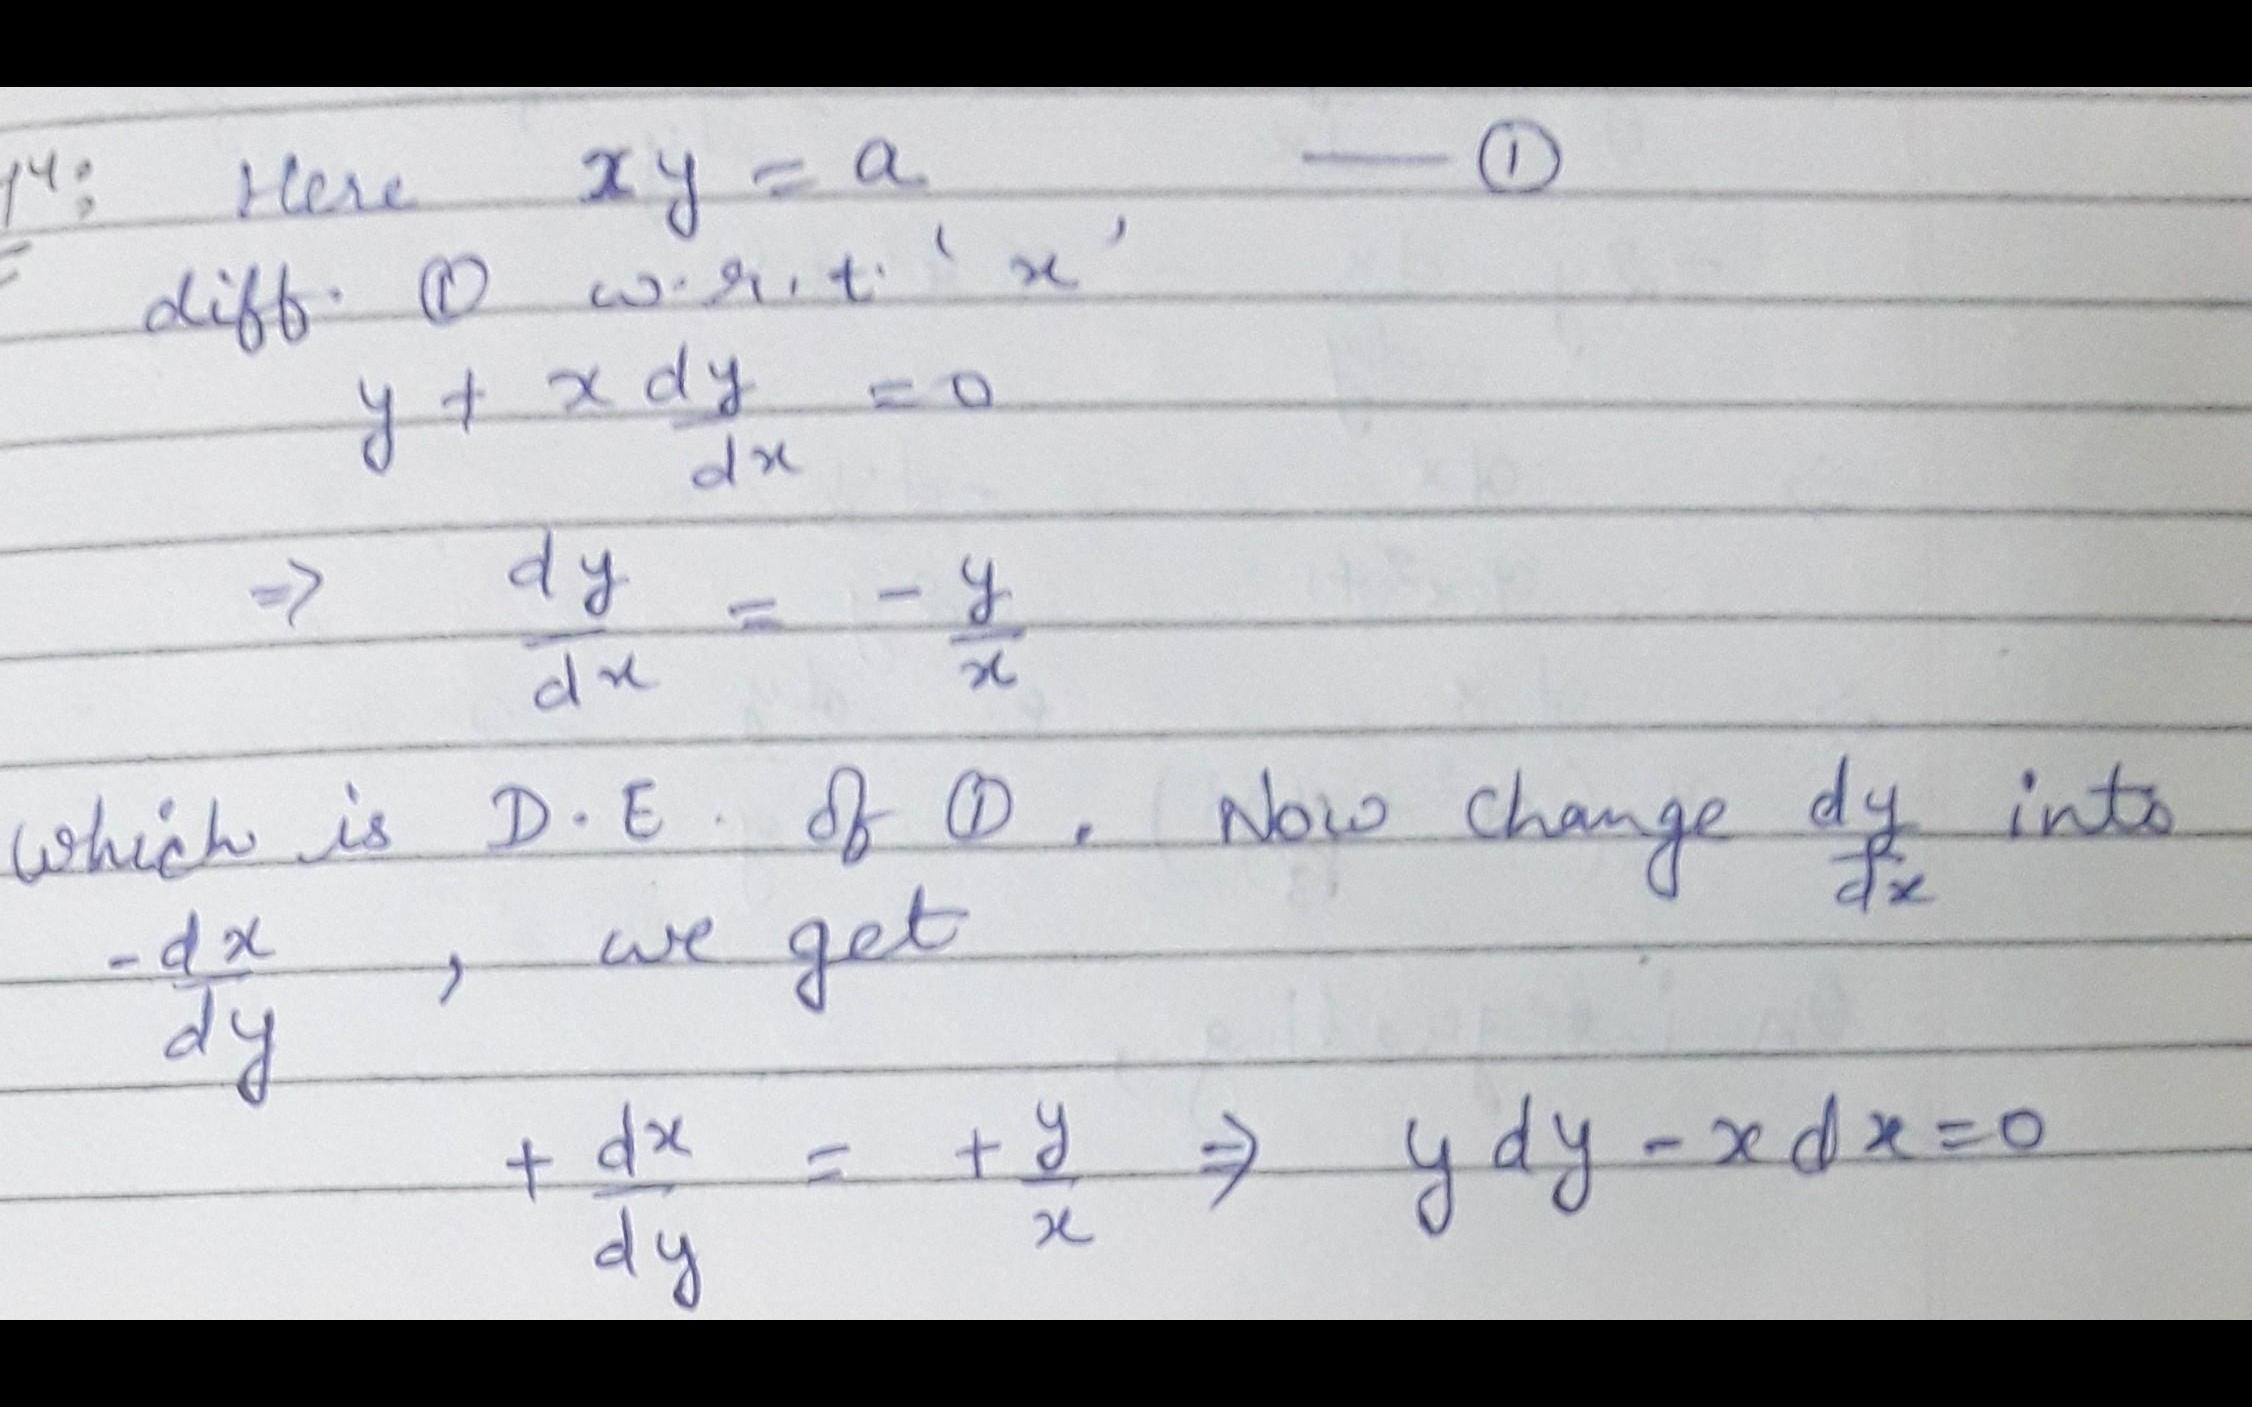 Here xy = a — ①
diff. ① w.r.t. 'x'
y + x dy/dx = 0
⇒ dy/dx = - y/x
which is D.E. of ①. Now change dy/dx into
- dx/dy, we get
+ dx/dy = + y/x ⇒ y dy - x dx = 0